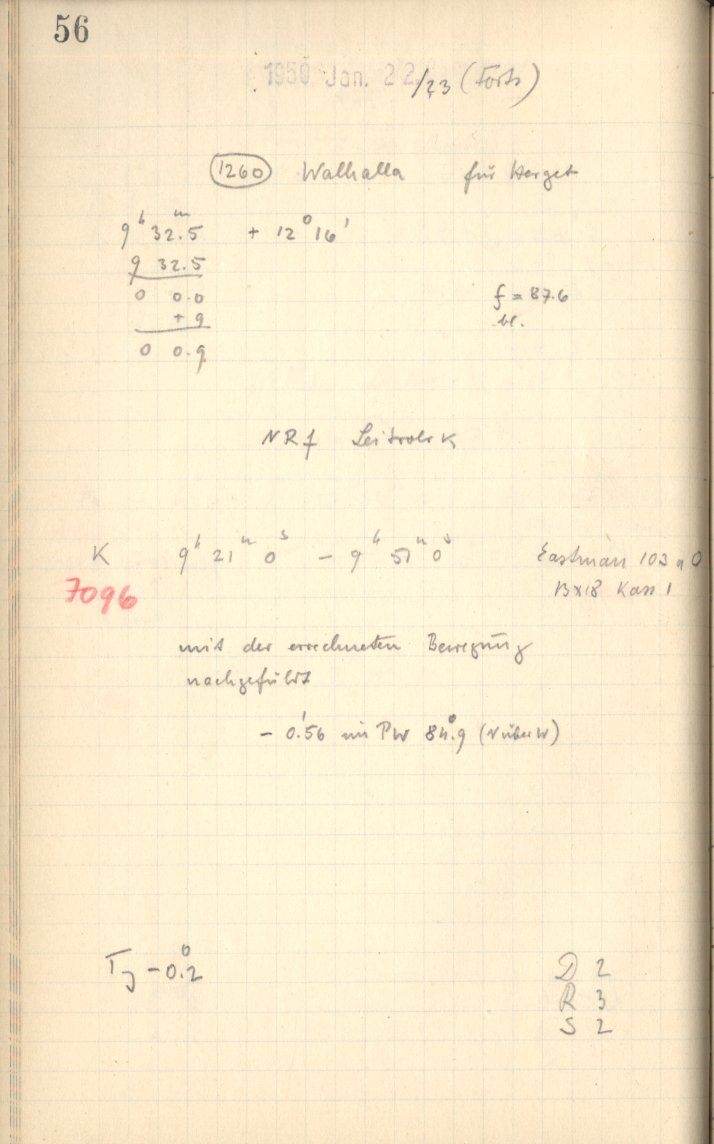 56
1950 Jan. 22/23 (Forts)
1260 Walhalla für Herget
9h 32m.5 + 12° 16'
9 32.5
0 0.0
+ 9
0 0.9
f = 87.6
bl.
NRf
K 9h 21m 0s – 9h 51m 0s Eastman 103 a O
7096 13x18 Kass 1
mit der errechneten Bewegung
nachgeführt
– 0'.56 im Pw 84°.9 (N über W)
– 0°.2
D 2
R 3
S 2